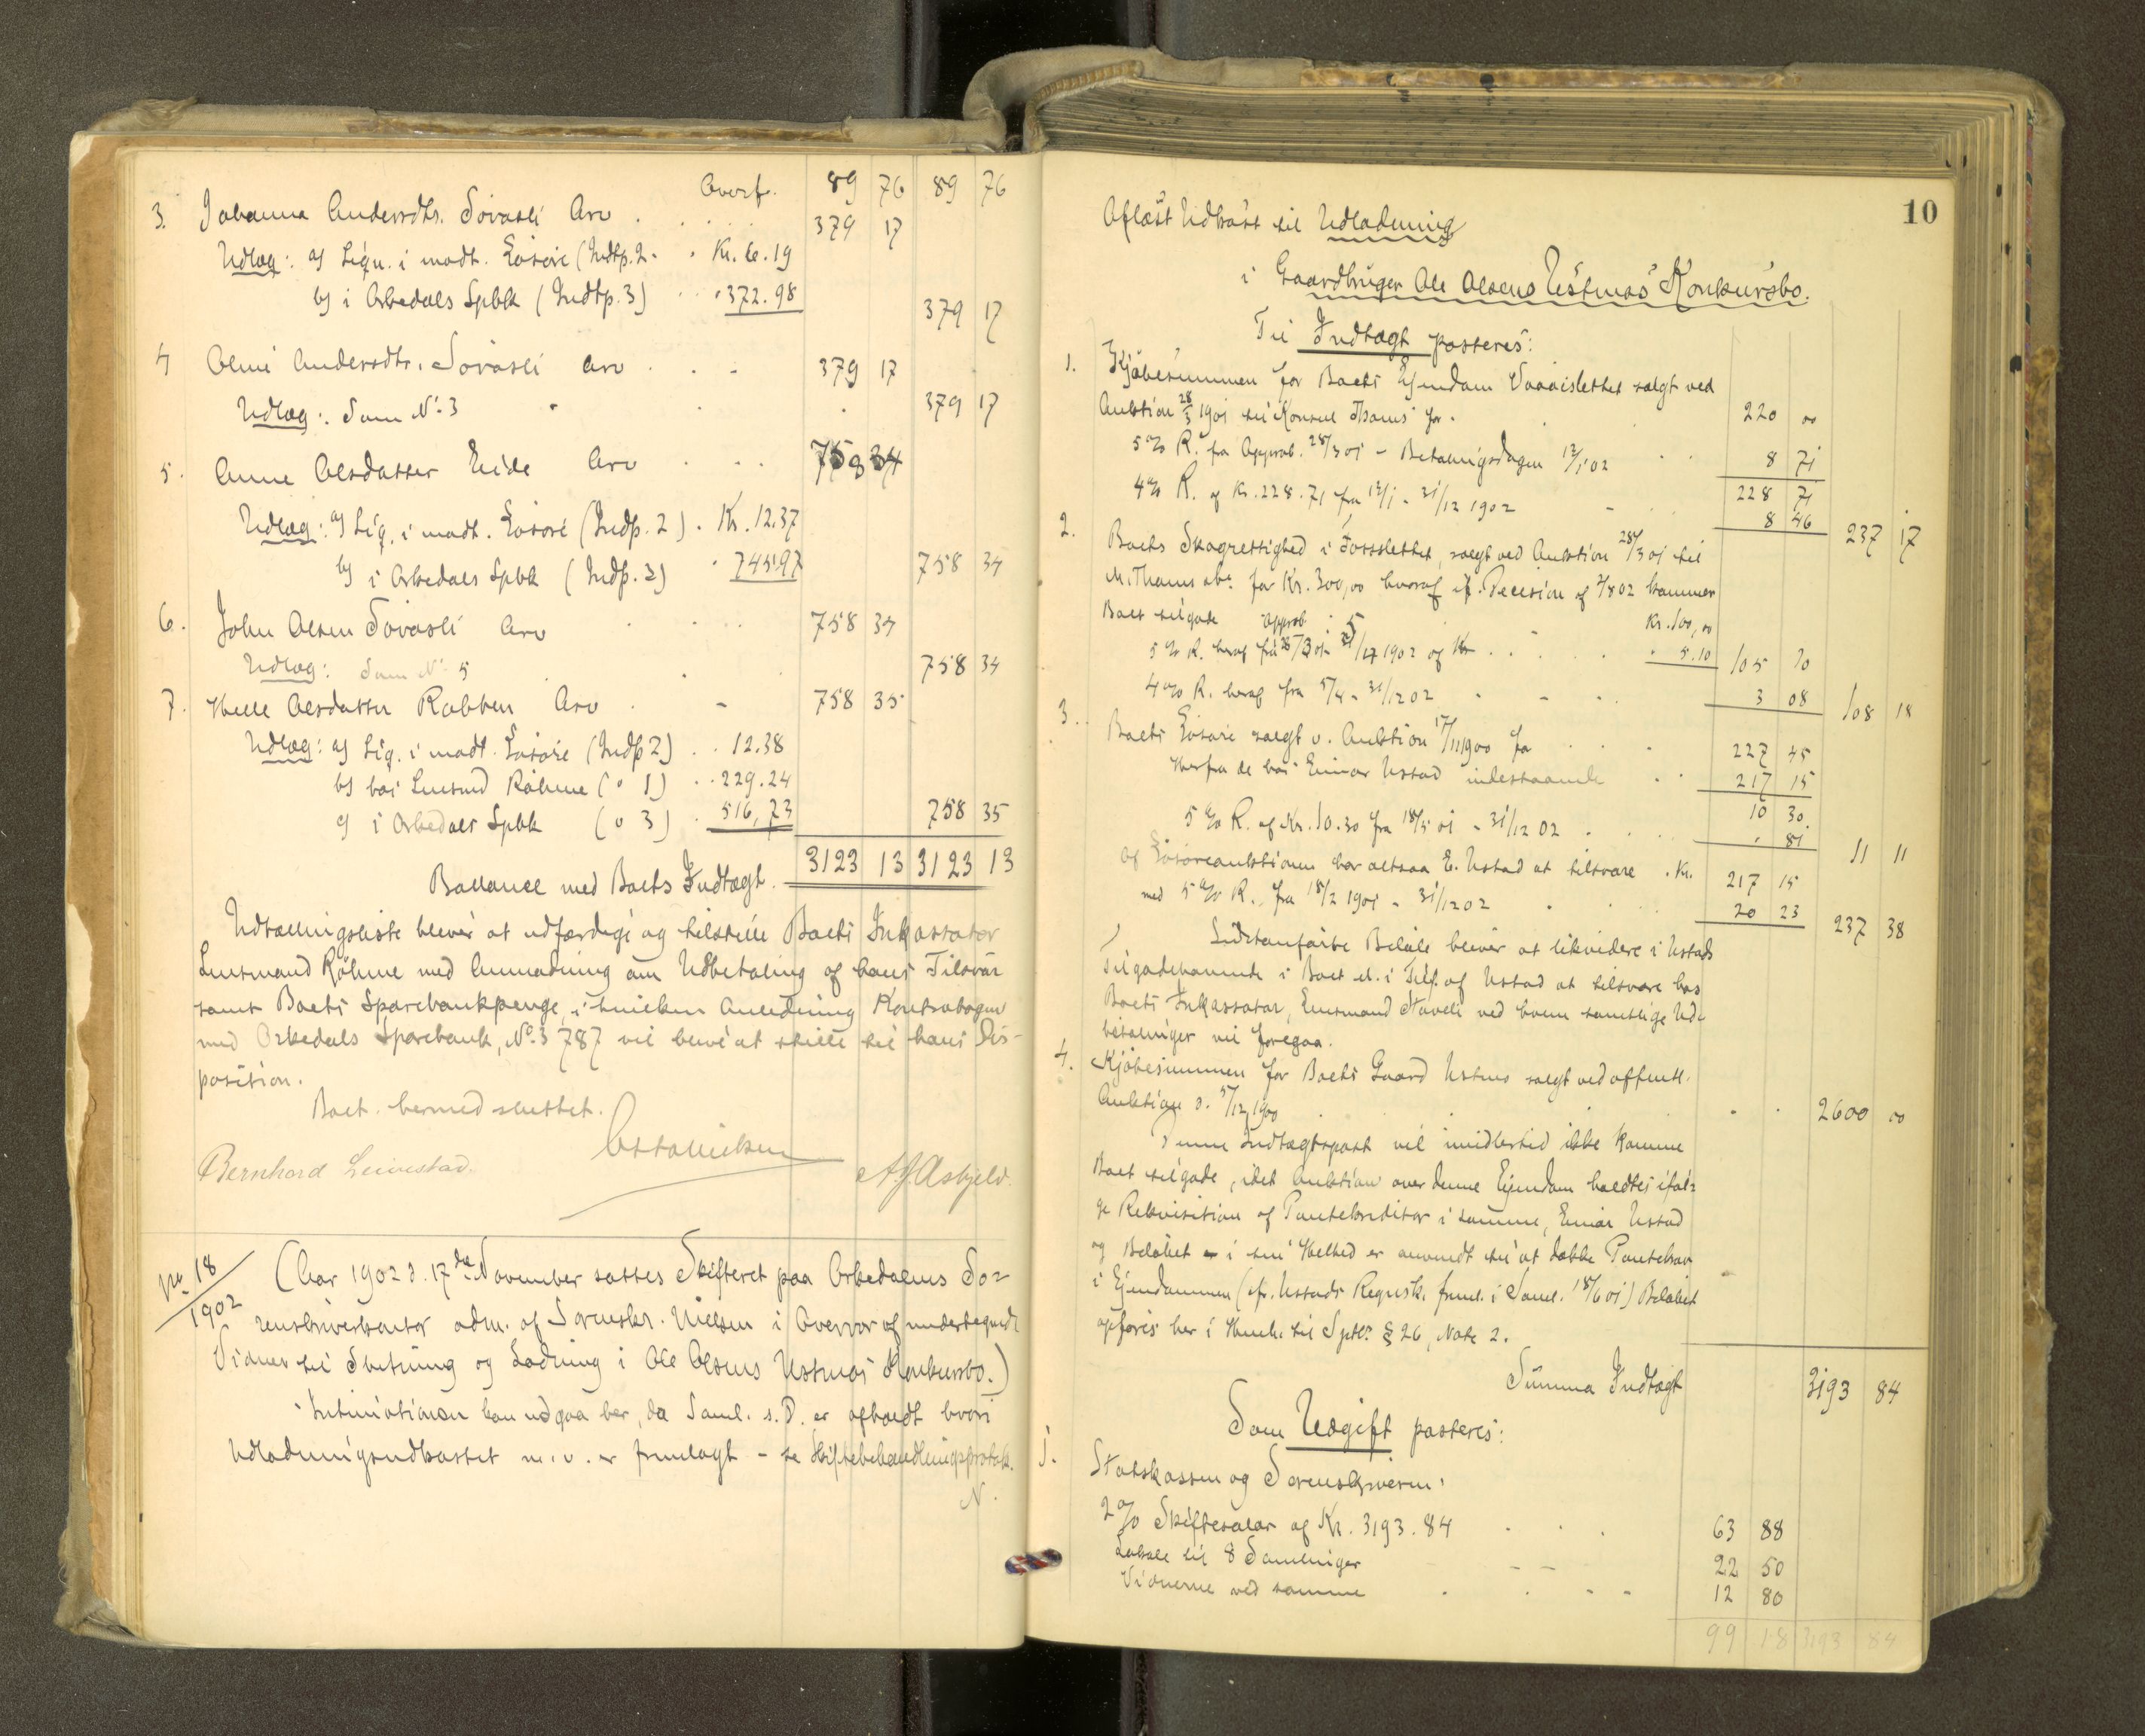 Overf. 89 76 89 76
3. Johanna Andersdtr. Sovasli Arv . . . 379 17
Udlæg: a) Liqu. i modt. Løsøre (Indtp. 2 . . Kr. 6.19
b) i Orkedals Spbk (Indtp. 3) . . " 372.98 379 17
4 Oline Andersdtr. Sovasli Arv . . . 379 17
Udlæg: Som No. 3 . . . 379 17
5. Anne Olsdatter Eide Arv . . . 758 34
Udlæg: a) Liq. i modt. Løsøre (Indp. 2) . Kr. 12.37
b) i Orkedals Spbk (Indp. 3) . 745.97 758 34
6. John Olsen Sovasli Arv . . . 758 34
Udlæg: Som No. 5 . . 758 34
7. Helle Olsdatter Rabben Arv . - 758 35
Udlæg: a) Liq. i modt. Løsøre (Indp 2) . . 12.38
b) hos Lensmd Röhme ( " 1) . . 229.24
c) i Orkedals Spbk ( " 3) . 516,73 758 35
Ballance med Boets Indtægt. 3123 13 3123 13
Udtællingsliste bliver at udfærdige og tilstille Boets Inkassator
Lensmand Röhme med Anmodning om Udbetaling af hans Tilsvar
samt Boets Sparebankpenge, i hvilken Anledning Kontrabogen
med Orkedals Sparebank, No. 3787 vil blive at stille til hans Dis-
position.
Boet hermed sluttet.
Bernhard Leinestad. A. J. Asbjeld.
No 18/1902 (Aar 1902 d. 17de November sattes Skifteret paa Orkedalens So-
renskriverkontor adm. af Sorenskr. Nielsen i Overvær af undertegnede
Vidner til Slutning og Lodning i Ole Olsens Ustmos Konkursbo.)
Intimationen kan udgaa her, da Saml. s. D. er afholdt hvori
Udlodningsudkastet m. v. er fremlagt - se Skiftebehandlingsprotok.
N.
10
Oplæst Udkast til Udlodning
i Gaardbruger Ole Olsens Ustmos Konkursbo.
Til Indtægt posteres:
1. Kjøbesummen for Boets Ejendom Vaaaisletted solgt ved
Auktion 28/3 1901 til Konsul Thams for . 220 00
5 % R. fra Approb. 28/3 01 - Betalingsdagen 12/1 02 . . 8 71
228 71
4 % R. af Kr. 228.71 fra 12/1 - 31/12 1902 - . 8 46 237 17
2. Boets Skogrettighed i Fossslettet, solgt ved Auktion 28/3 01 til
M. Thams obs. for Kr. 300,00 hvoraf if. Decision af 2/8 02 kommer
Boet tilgode Kr. 100,00
5 % R. heraf fra Approb 28/3 01 - 1902 af Kr . . . " 5.10 105 10
4 % R. heraf fra 5/4 - 31/12 02 . - . 3 08 108 18
3. Boets Løsøre solgt v. Auktion 17/11 1900 for . . . 227 45
Herfra de hos Einar Ustad indestaaende . . 217 15
10 30
5 % R. af Kr. 10.30 fra 18/5 01 - 31/12 02 . . . " 81 11 11
Af Løsøreauktionen har altsaa E. Ustad at tilsvare . Kr. 217 15
med 5 % R. fra 18/2 1901 - 31/12 02 . . 20 23 237 38
Sidstanførte Beløb bliver at likvidere i Ustads
Tilgodehavende i Boet el. i Tilf. af Ustad at tilsvare hos
Boets Inkassator, Lensmand Staveli ved hvem samtlige Ud-
betalinger vil foregaa.
4. Kjøbesummen for Boets Gaard Ustmo solgt ved offentl.
Auktion d. 5/12 1900 . . . 2600 00
Denne Indtægtspost vil imidlertid ikke komme
Boet tilgode, idet Auktion over denne Ejendom holdtes iføl-
ge Rekvisition af Pantekreditor i samme, Einar Ustad
og Beløbet i sin Helhed er anvendt til at dække Pantekrav
i Ejendommen (cfr. Ustads Regnsk. freml. i Saml. 18/6 01) Beløbet
opføres her i Henh. til Sptl. § 26, Note 2.
Summa Indtægt 3193 84
Som Udgift posteres:
1. Statskassen og Sorenskriveren:
2 % Skiftesalær af Kr. 3193.84 . . . 63 88
Lokale til 8 Samlinger - - 22 50
Vidnerne ved samme . . - - 12 80
99 18 3193 84